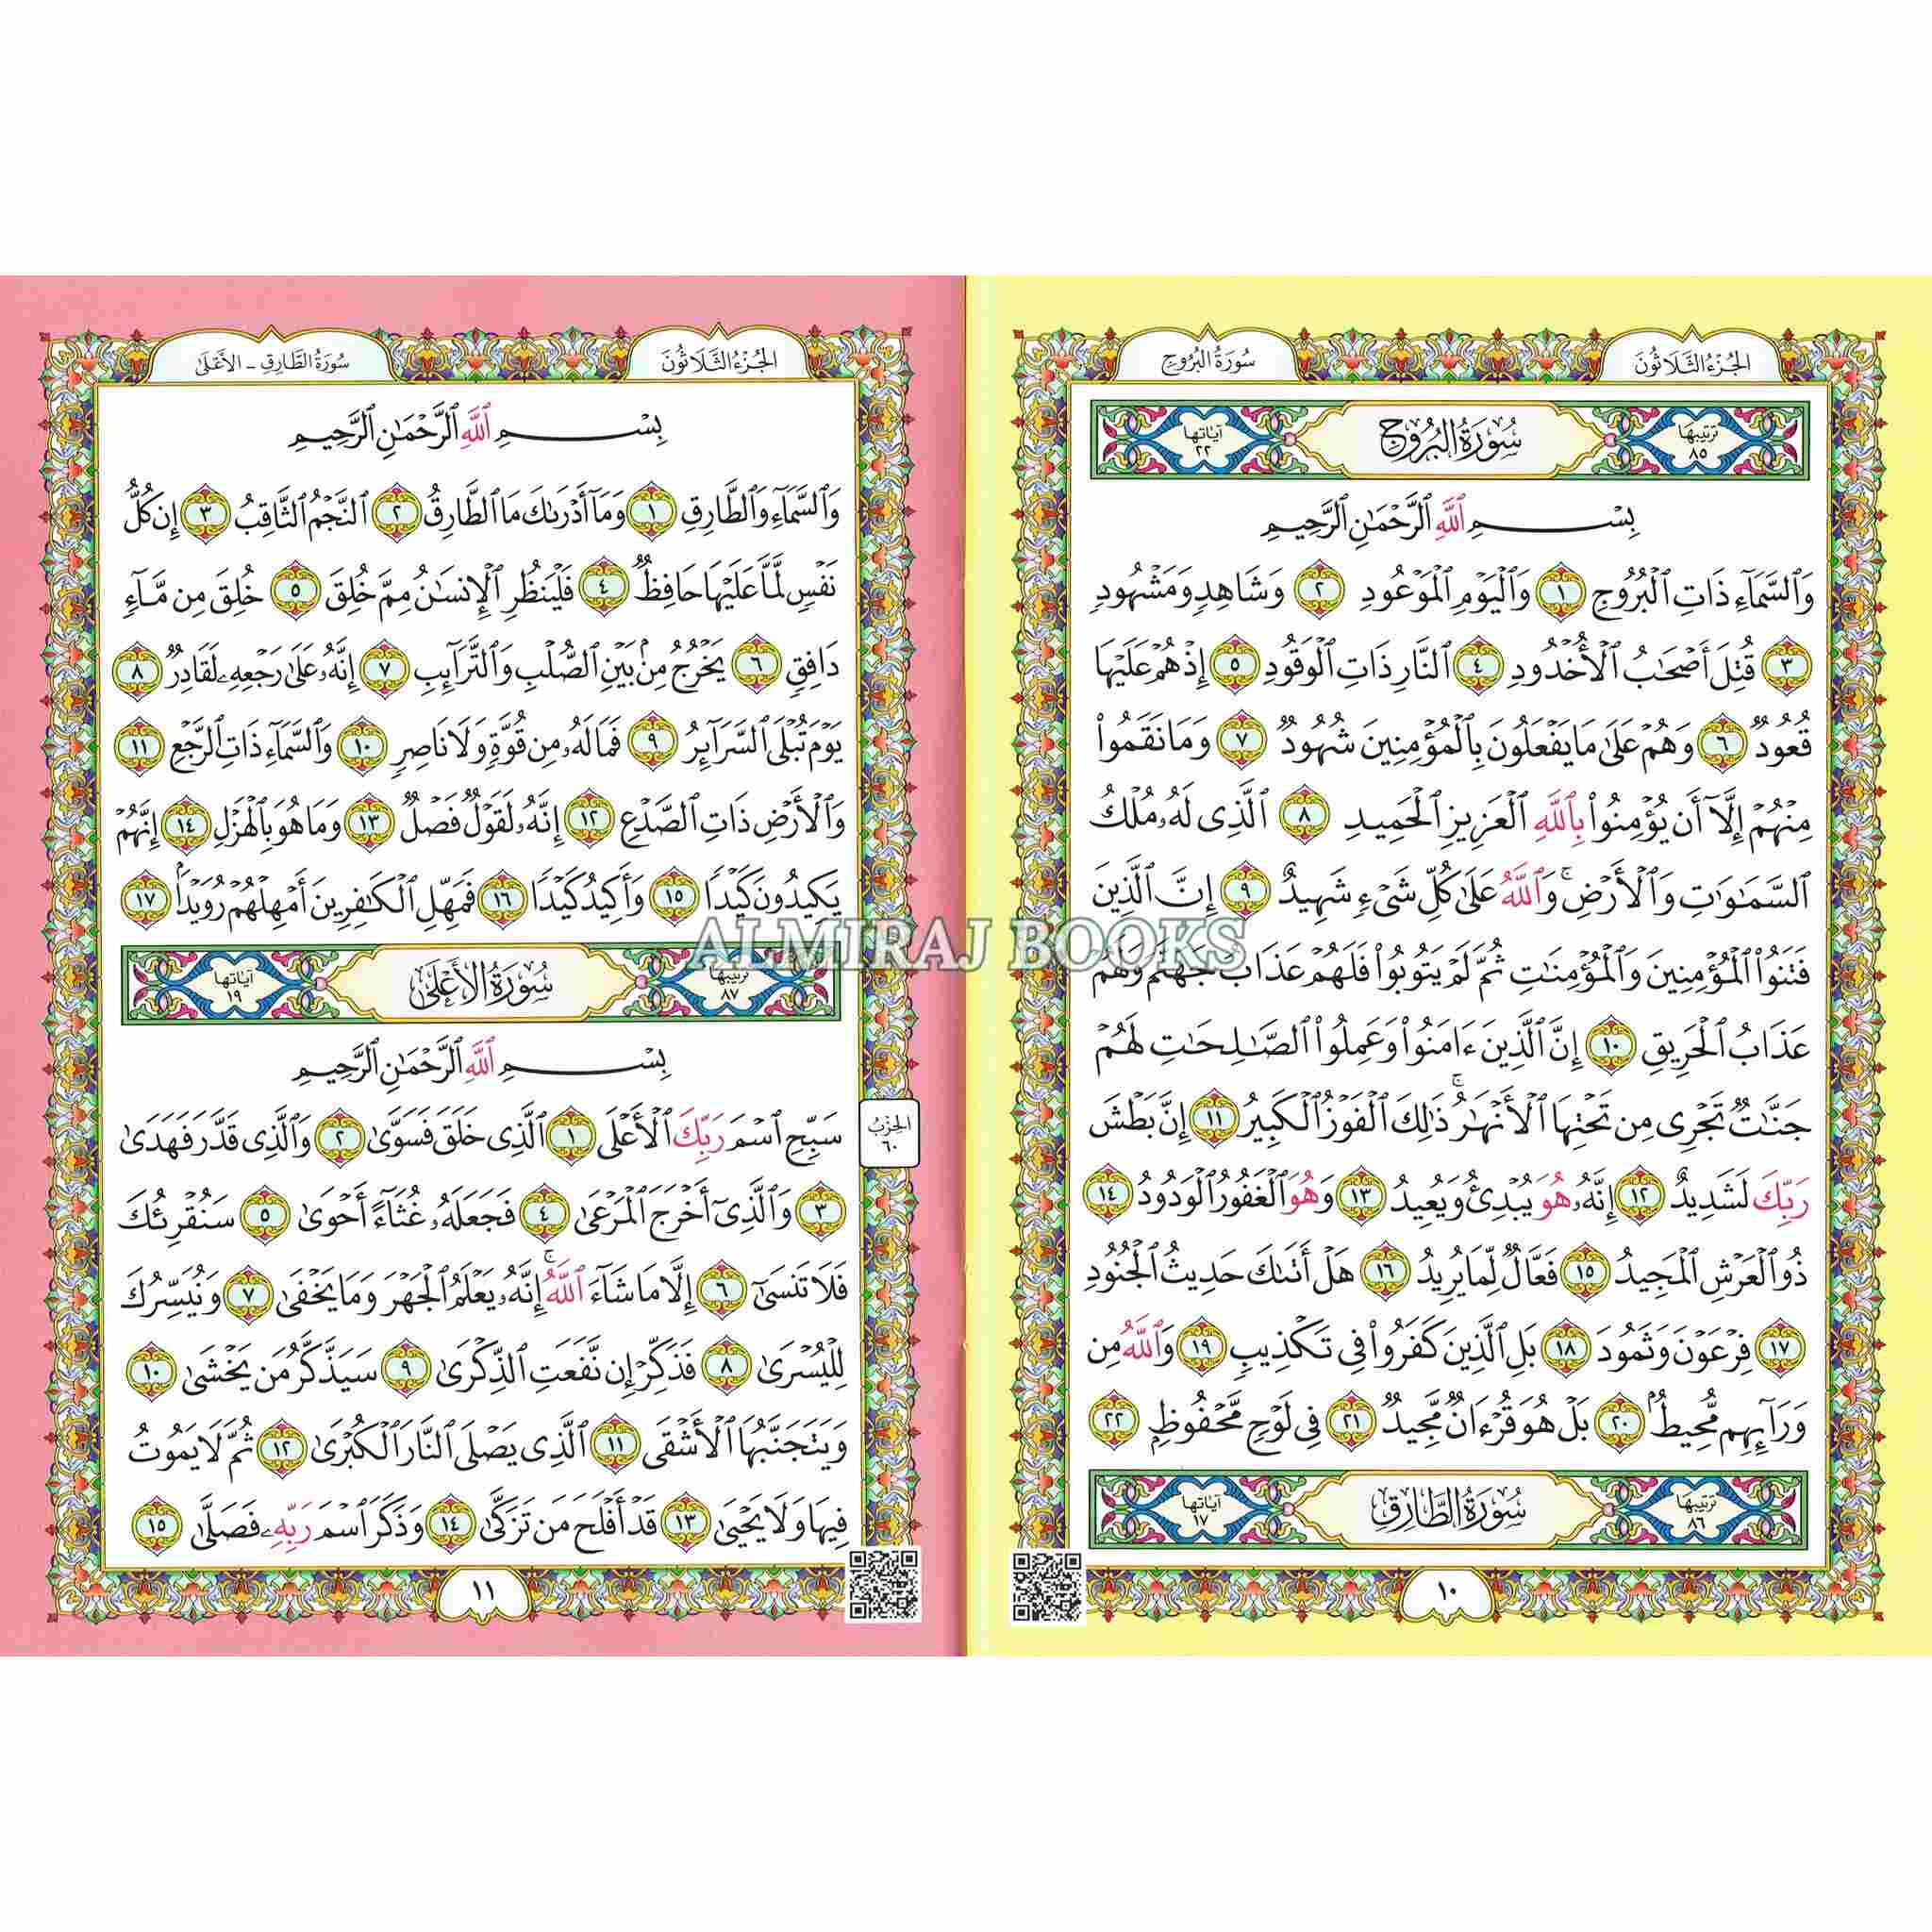 الجُزْءُ الثَّلَاثُونَ
سُورَةُ البُرُوجِ
ترتيبها ٨٥
سُورَةُ البُرُوجِ
آياتها ٢٢
بِسْمِ ٱللَّهِ ٱلرَّحْمَٰنِ ٱلرَّحِيمِ
وَٱلسَّمَآءِ ذَاتِ ٱلْبُرُوجِ ١ وَٱلْيَوْمِ ٱلْمَوْعُودِ ٢ وَشَاهِدٍ وَمَشْهُودٍ
٣ قُتِلَ أَصْحَٰبُ ٱلْأُخْدُودِ ٤ ٱلنَّارِ ذَاتِ ٱلْوَقُودِ ٥ إِذْ هُمْ عَلَيْهَا
قُعُودٌ ٦ وَهُمْ عَلَىٰ مَا يَفْعَلُونَ بِٱلْمُؤْمِنِينَ شُهُودٌ ٧ وَمَا نَقَمُوا۟
مِنْهُمْ إِلَّآ أَن يُؤْمِنُوا۟ بِٱللَّهِ ٱلْعَزِيزِ ٱلْحَمِيدِ ٨ ٱلَّذِى لَهُۥ مُلْكُ
ٱلسَّمَٰوَٰتِ وَٱلْأَرْضِ ۚ وَٱللَّهُ عَلَىٰ كُلِّ شَىْءٍ شَهِيدٌ ٩ إِنَّ ٱلَّذِينَ
فَتَنُوا۟ ٱلْمُؤْمِنِينَ وَٱلْمُؤْمِنَٰتِ ثُمَّ لَمْ يَتُوبُوا۟ فَلَهُمْ عَذَابُ جَهَنَّمَ وَلَهُمْ
عَذَابُ ٱلْحَرِيقِ ١٠ إِنَّ ٱلَّذِينَ ءَامَنُوا۟ وَعَمِلُوا۟ ٱلصَّٰلِحَٰتِ لَهُمْ
جَنَّٰتٌ تَجْرِى مِن تَحْتِهَا ٱلْأَنْهَٰرُ ۚ ذَٰلِكَ ٱلْفَوْزُ ٱلْكَبِيرُ ١١ إِنَّ بَطْشَ
رَبِّكَ لَشَدِيدٌ ١٢ إِنَّهُۥ هُوَ يُبْدِئُ وَيُعِيدُ ١٣ وَهُوَ ٱلْغَفُورُ ٱلْوَدُودُ ١٤
ذُو ٱلْعَرْشِ ٱلْمَجِيدُ ١٥ فَعَّالٌ لِّمَا يُرِيدُ ١٦ هَلْ أَتَىٰكَ حَدِيثُ ٱلْجُنُودِ
١٧ فِرْعَوْنَ وَثَمُودَ ١٨ بَلِ ٱلَّذِينَ كَفَرُوا۟ فِى تَكْذِيبٍ ١٩ وَٱللَّهُ مِن
وَرَآئِهِم مُّحِيطٌۢ ٢٠ بَلْ هُوَ قُرْءَانٌ مَّجِيدٌ ٢١ فِى لَوْحٍ مَّحْفُوظٍۭ ٢٢
ترتيبها ٨٦
سُورَةُ الطَّارِقِ
آياتها ١٧
١٠
الجُزْءُ الثَّلَاثُونَ
سُورَةُ الطَّارِقِ - الأَعْلَىٰ
بِسْمِ ٱللَّهِ ٱلرَّحْمَٰنِ ٱلرَّحِيمِ
وَٱلسَّمَآءِ وَٱلطَّارِقِ ١ وَمَآ أَدْرَىٰكَ مَا ٱلطَّارِقُ ٢ ٱلنَّجْمُ ٱلثَّاقِبُ ٣ إِن كُلُّ
نَفْسٍ لَّمَّا عَلَيْهَا حَافِظٌ ٤ فَلْيَنظُرِ ٱلْإِنسَٰنُ مِمَّ خُلِقَ ٥ خُلِقَ مِن مَّآءٍ
دَافِقٍ ٦ يَخْرُجُ مِنۢ بَيْنِ ٱلصُّلْبِ وَٱلتَّرَآئِبِ ٧ إِنَّهُۥ عَلَىٰ رَجْعِهِۦ لَقَادِرٌ ٨
يَوْمَ تُبْلَى ٱلسَّرَآئِرُ ٩ فَمَا لَهُۥ مِن قُوَّةٍ وَلَا نَاصِرٍ ١٠ وَٱلسَّمَآءِ ذَاتِ ٱلرَّجْعِ ١١
وَٱلْأَرْضِ ذَاتِ ٱلصَّدْعِ ١٢ إِنَّهُۥ لَقَوْلٌ فَصْلٌ ١٣ وَمَا هُوَ بِٱلْهَزْلِ ١٤ إِنَّهُمْ
يَكِيدُونَ كَيْدًا ١٥ وَأَكِيدُ كَيْدًا ١٦ فَمَهِّلِ ٱلْكَٰفِرِينَ أَمْهِلْهُمْ رُوَيْدًۢا ١٧
ALMIRAJ BOOKS
ترتيبها ٨٧
سُورَةُ الأَعْلَىٰ
آياتها ١٩
بِسْمِ ٱللَّهِ ٱلرَّحْمَٰنِ ٱلرَّحِيمِ
سَبِّحِ ٱسْمَ رَبِّكَ ٱلْأَعْلَى ١ ٱلَّذِى خَلَقَ فَسَوَّىٰ ٢ وَٱلَّذِى قَدَّرَ فَهَدَىٰ
الحِزْبُ ٦٠
٣ وَٱلَّذِىٓ أَخْرَجَ ٱلْمَرْعَىٰ ٤ فَجَعَلَهُۥ غُثَآءً أَحْوَىٰ ٥ سَنُقْرِئُكَ
فَلَا تَنسَىٰٓ ٦ إِلَّا مَا شَآءَ ٱللَّهُ ۚ إِنَّهُۥ يَعْلَمُ ٱلْجَهْرَ وَمَا يَخْفَىٰ ٧ وَنُيَسِّرُكَ
لِلْيُسْرَىٰ ٨ فَذَكِّرْ إِن نَّفَعَتِ ٱلذِّكْرَىٰ ٩ سَيَذَّكَّرُ مَن يَخْشَىٰ ١٠
وَيَتَجَنَّبُهَا ٱلْأَشْقَى ١١ ٱلَّذِى يَصْلَى ٱلنَّارَ ٱلْكُبْرَىٰ ١٢ ثُمَّ لَا يَمُوتُ
فِيهَا وَلَا يَحْيَىٰ ١٣ قَدْ أَفْلَحَ مَن تَزَكَّىٰ ١٤ وَذَكَرَ ٱسْمَ رَبِّهِۦ فَصَلَّىٰ ١٥
١١